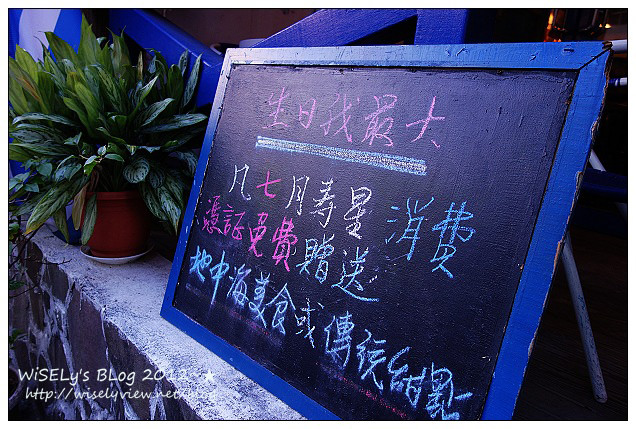 生日我最大
凡七月壽星消費
憑証免費贈送
地中海美食或傳統甜點
WiSELy's Blog 2012 ★
http://wiselyview.net/blog